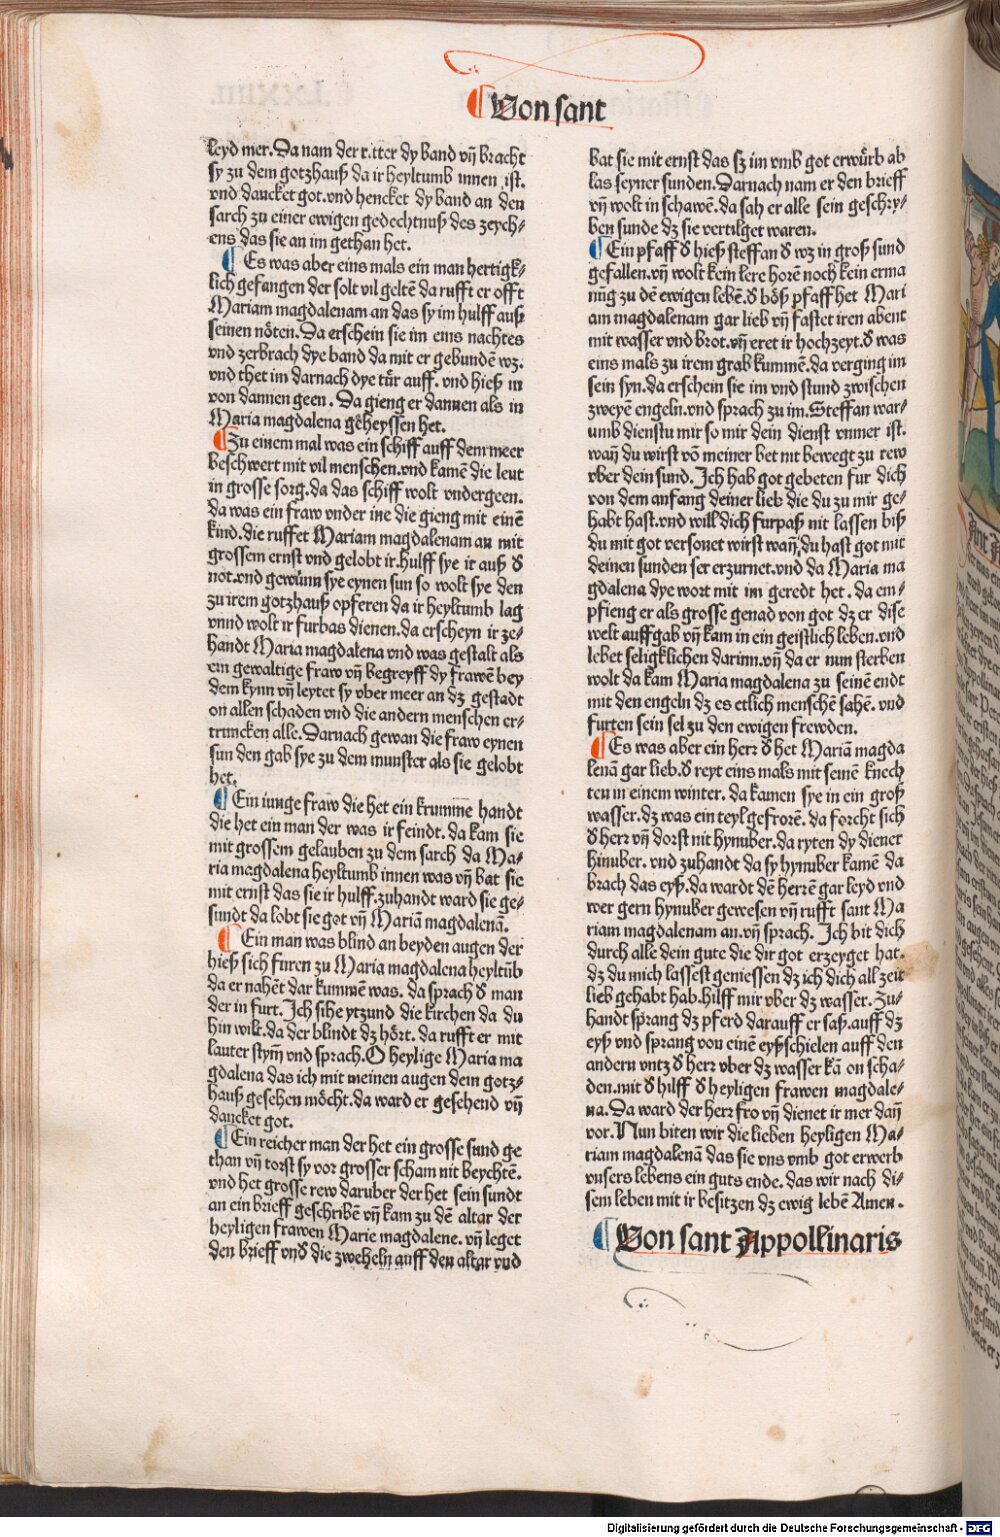 Von sant
leyd mer. Da nam der ritter dy band vñ bracht
sy zu dem gotzhauß da ir heyltumb innen ist.
vnd dancket got. vnd hencket dy band an den
sarch zu einer ewigen gedechtnuß des zeych⸗
ens das sie an im gethan het.
Es was aber eins mals ein man hertigk⸗
lich gefangen der solt vil geltẽ da rufft er offt
Mariam magdalenam an das sy im hulff auß
seinen nöten. Da erschein sie im eins nachtes
vnd zerbrach dye band da mit er gebundẽ wz.
vnd thet im darnach dye tür auff. vnd hieß in
von dannen geen. Da gieng er dannen als in
Maria magdalena geheyssen het.
Zu einem mal was ein schiff auff dem meer
beschwert mit vil menschen. vnd kamẽ die leut
in grosse sorg. da das schiff wolt vndergeen.
da was ein fraw vnder ine die gieng mit einẽ
kind. die ruffet Mariam magdalenam an mit
grossem ernst vnd gelobt ir. hulff sye ir auß d̕
not. vnd gewünn sye eynen sun so wolt sye den
zu irem gotzhauß opferen da ir heyltumb lag
vnnd wolt ir furbas dienen. da erscheyn ir ze⸗
handt Maria magdalena vnd was gestalt als
ein gewaltige fraw vñ begreyff dy frawẽ bey
dem kynn vñ leytet sy vber meer an dz gestadt
on allen schaden vnd die andern menschen er⸗
truncken alle. Darnach gewan die fraw eynen
sun den gab sye zu dem munster als sie gelobt
het.
Ein iunge fraw die het ein krumme handt
die het ein man der was ir feindt. da kam sie
mit grossem gelauben zu dem sarch da Ma⸗
ria magdalena heyltumb innen was vñ bat sie
mit ernst das sie ir hulff. zuhandt ward sie ge⸗
sundt da lobt sie got vñ Mariã magdalenã.
Ein man was blind an beyden augen der
hieß sich füren zu Maria magdalena heyltũb
da er nahẽt dar kummẽ was. da sprach d̕ man
der in furt. Ich sihe ytzund die kirchen da du
hin wilt. da der blindt dz hört. da rufft er mit
lauter stym̃ vnd sprach. O heylige Maria ma
gdalena das ich mit meinen augen dein gotz⸗
hauß gesehen möcht. da ward er gesehend vñ
dancket got.
Ein reicher man der het ein grosse sund ge
than vñ torst sy vor grosser scham nit beychtẽ.
vnd het grosse rew daruber der het sein sundt
an ein brieff geschribẽ vñ kam zu dẽ altar der
heyligen frawen Marie magdalene. vñ leget
den brieff vnd̕ die zweheln auff den altar vnd
bat sie mit ernst das sz im vmb got erwürb ab
las seyner sunden. Darnach nam er den brieff
vñ wolt in schawẽ. da sah er alle sein geschry⸗
ben sunde dz sie vertilget waren.
Ein pfaff d̕ hieß steffan d̕ wz in groß sund
gefallen. vñ wolt kein lere horẽ noch kein erma
nũg zu dẽ ewigen lebẽ. d̕ böß pfaff het Mari
am magdalenam gar lieb vñ fastet iren abent
mit wasser vnd brot. vñ eret ir hochzeyt. d̕ was
eins mals zu irem grab kummẽ. da verging im
sein syn. da erschein sie im vnd stund zwischen
zweyẽ engeln. vnd sprach zu im. Steffan war⸗
umb dienstu mir so mir dein dienst vnmer ist.
wañ du wirst võ meiner bet nit bewegt zu rew
vber dein sund. Ich hab got gebeten fur dich
von dem anfang deiner lieb die du zu mir ge⸗
habt hast. vnd will dich furpaß nit lassen biß
du mit got versonet wirst wañ du hast got mit
deinen sunden ser erzurnet. vnd da Maria ma
gdalena dye wort mit im geredt het. da em⸗
pfieng er als grosse genad von got dz er dise
welt auffgab vñ kam in ein geistlich leben. vnd
lebet seligklichen darinn. vñ da er nun sterben
wolt da kam Maria magdalena zu seinẽ endt
mit den engeln dz es etlich menschẽ sahẽ. vnd
furten sein sel zu den ewigen frewden.
Es was aber ein herr d̕ het Mariã magda
lenã gar lieb. d̕ reyt eins mals mit seinẽ knech
ten in einem winter. da kamen sye in ein groß
wasser. dz was ein teyl gefrorẽ. da forcht sich
d̕ herr vñ dorst nit hynuber. da ryten dy diener
hinuber. vnd zuhandt da sy hynuber kamẽ da
brach das eyß. da wardt dẽ herrẽ gar leyd vnd
wer gern hynuber gewesen vñ rufft sant Ma
riam magdalenam an. vñ sprach. Ich bit dich
durch alle dein gute die dir got erzeyget hat.
dz du mich lassest geniessen dz ich dich all zeit
lieb gehabt hab. hilff mir vber dz wasser. Zu⸗
handt sprang dz pferd darauff er saß. auff dz
eyß vnd sprang von einẽ eyßschielen auff den
andern vntz d̕ herr vber dz wasser kã on scha⸗
den. mit d̕ hilff d̕ heyligen frawen magdale⸗
na. Da ward der herr fro vñ dienet ir mer dañ
vor. Nun biten wir die lieben heyligen Ma⸗
riam magdalenã das sie vns vmb got erwerb
vnsers lebens ein guts ende. das wir nach di⸗
sem leben mit ir besitzen dz ewig lebẽ Amen.
Von sant Appollinaris
Digitalisierung gefördert durch die Deutsche Forschungsgemeinschaft - DFG